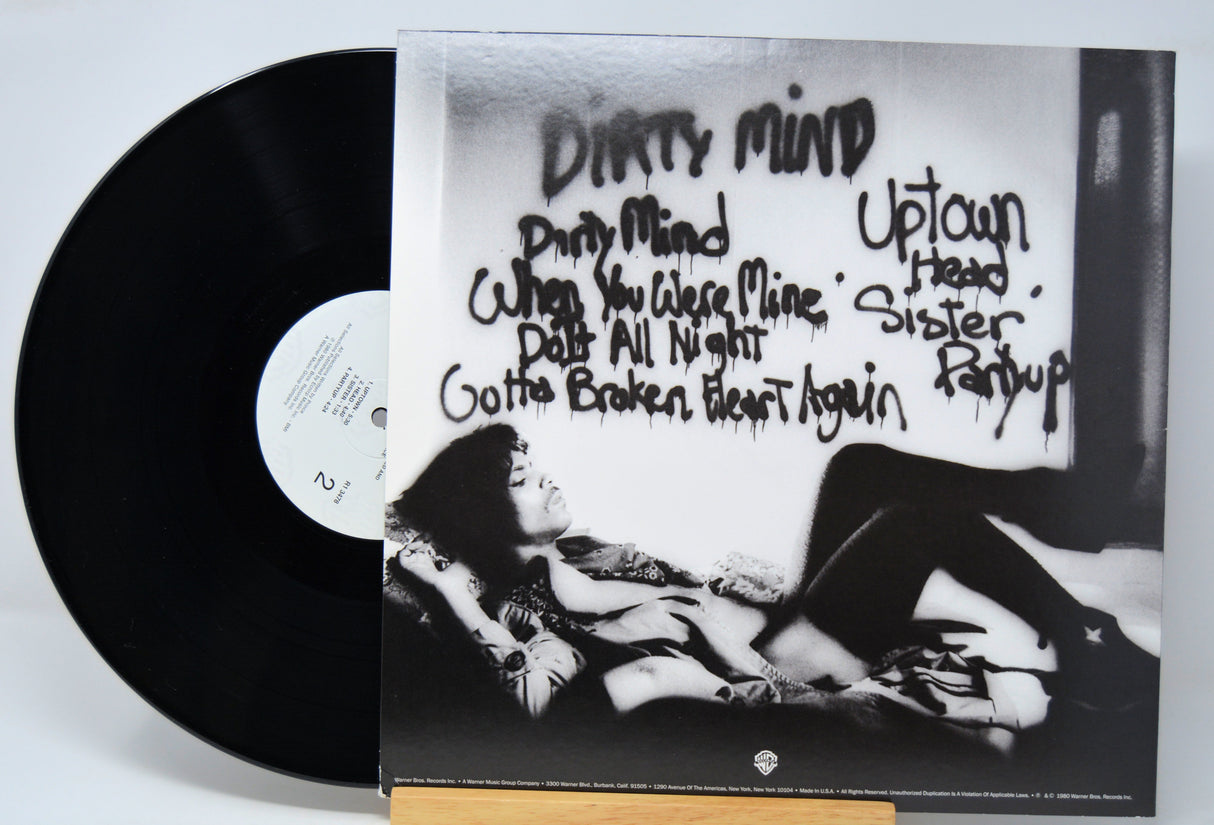 DIRTY MIND
Dirty Mind
When You Were Mine
Do It All Night
Gotta Broken Heart Again
Uptown
Head
Sister
Partyup
1. UPTOWN - 5:30
2. HEAD - 4:40
3. SISTER - 1:33
4. PARTYUP - 4:24
All Selections Written by Prince
R1 3478
2
Warner Bros. Records Inc. • A Warner Music Group Company • 3300 Warner Blvd., Burbank, Calif. 91505 • 1290 Avenue Of The Americas, New York, New York 10104 • Made In U.S.A. • All Rights Reserved. Unauthorized Duplication Is A Violation Of Applicable Laws. • ℗ & © 1980 Warner Bros. Records Inc.